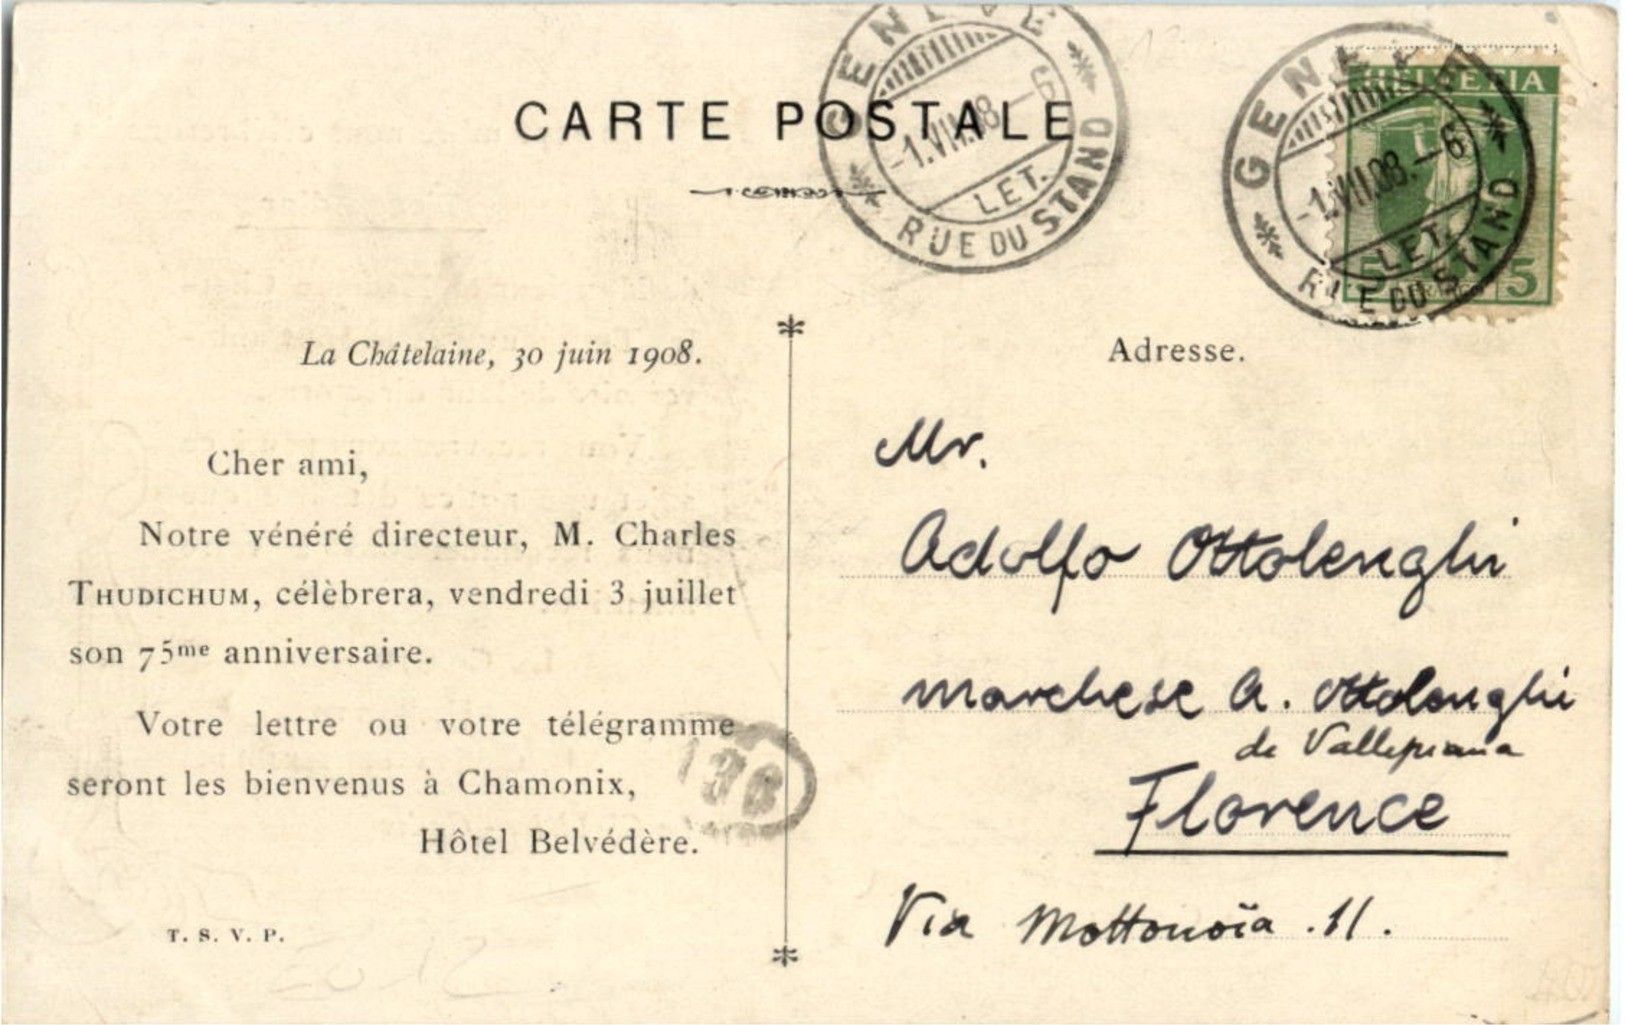 CARTE POSTALE
GENÈVE
-1.VII.08.-6
LET.
RUE DU STAND
GENÈVE
-1.VII.08.-6
LET.
RUE DU STAND
HELVETIA
5 5
La Châtelaine, 30 juin 1908.
Cher ami,
Notre vénéré directeur, M. Charles
THUDICHUM, célèbrera, vendredi 3 juillet
son 75me anniversaire.
Votre lettre ou votre télégramme
seront les bienvenus à Chamonix,
Hôtel Belvédère.
T. S. V. P.
Adresse.
Mr.
Adolfo Ottolenghi
marchese A. Ottolenghi
de Vallepiana
Florence
Via Mottonoïa .11.